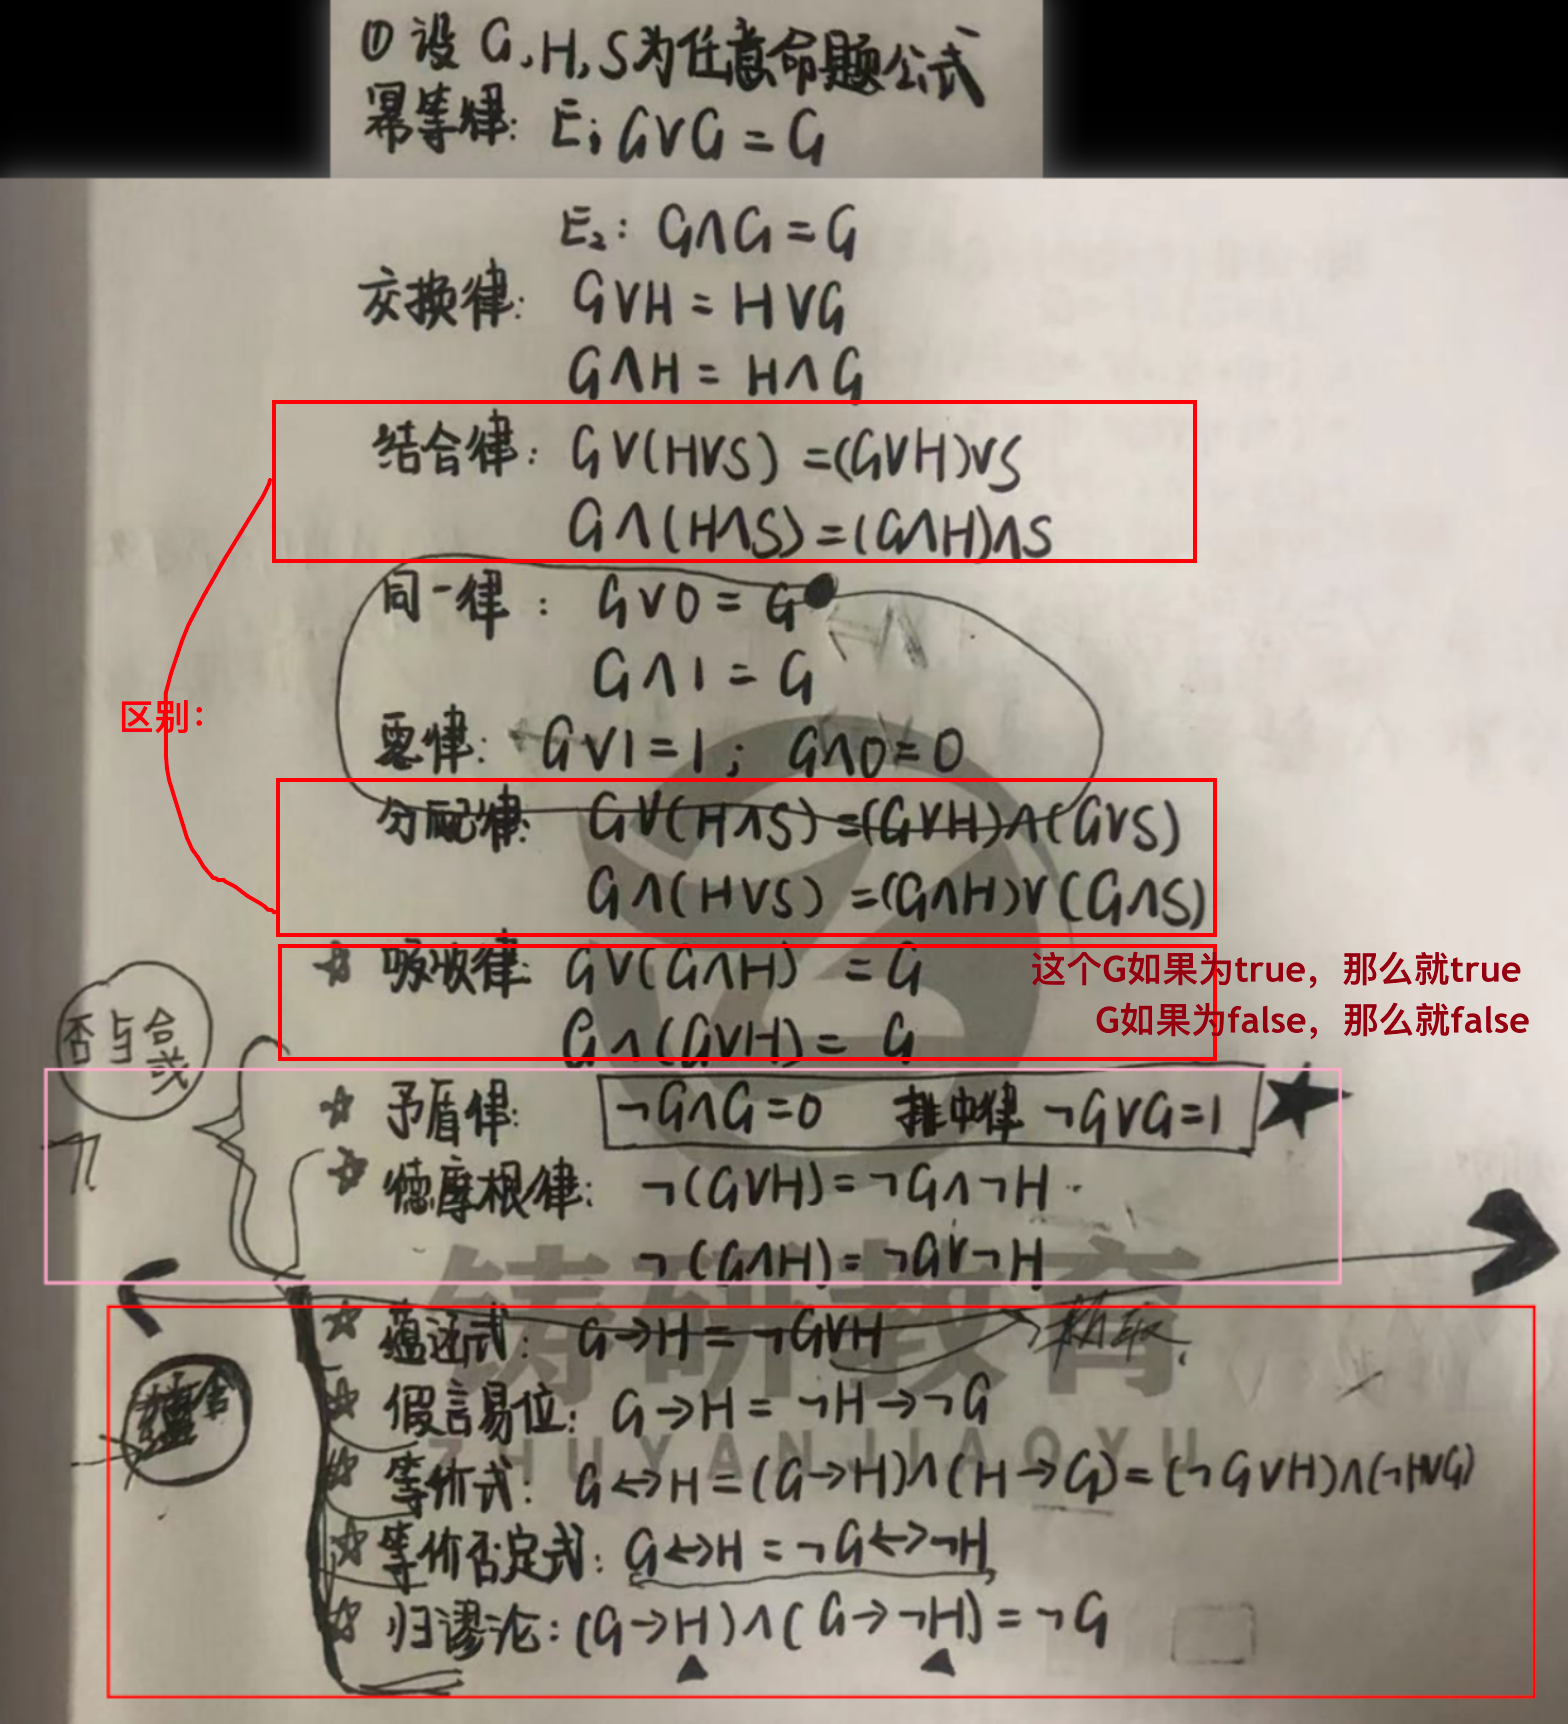 ① 设 G,H,S为任意命题公式
幂等律: E₁ G∨G = G
E₂: G∧G = G
交换律: G∨H = H∨G
G∧H = H∧G
结合律: G∨(H∨S) =(G∨H)∨S
G∧(H∧S)=(G∧H)∧S
同一律: G∨0 = G
G∧1 = G
区别:
零律: G∨1=1; G∧0=0
分配律: G∨(H∧S)=(G∨H)∧(G∨S)
G∧(H∨S)=(G∧H)∨(G∧S)
☆ 吸收律 G∨(G∧H) = G 这个G如果为true，那么就true
G∧(G∨H) = G G如果为false，那么就false
否与合
或
☆ 矛盾律: ¬G∧G=0 排中律 ¬G∨G=1 ★
☆ 德摩根律: ¬(G∨H)=¬G∧¬H
¬(G∧H)=¬G∨¬H
铸研教育
☆ 蕴涵式: G→H = ¬G∨H
☆ 假言易位: G→H = ¬H→¬G
ZHUYANJIAOYU
☆ 等价式: G↔H=(G→H)∧(H→G)=(¬G∨H)∧(¬H∨G)
☆ 等价否定式: G↔H =¬G↔¬H
☆ 归谬论:(G→H)∧(G→¬H)=¬G